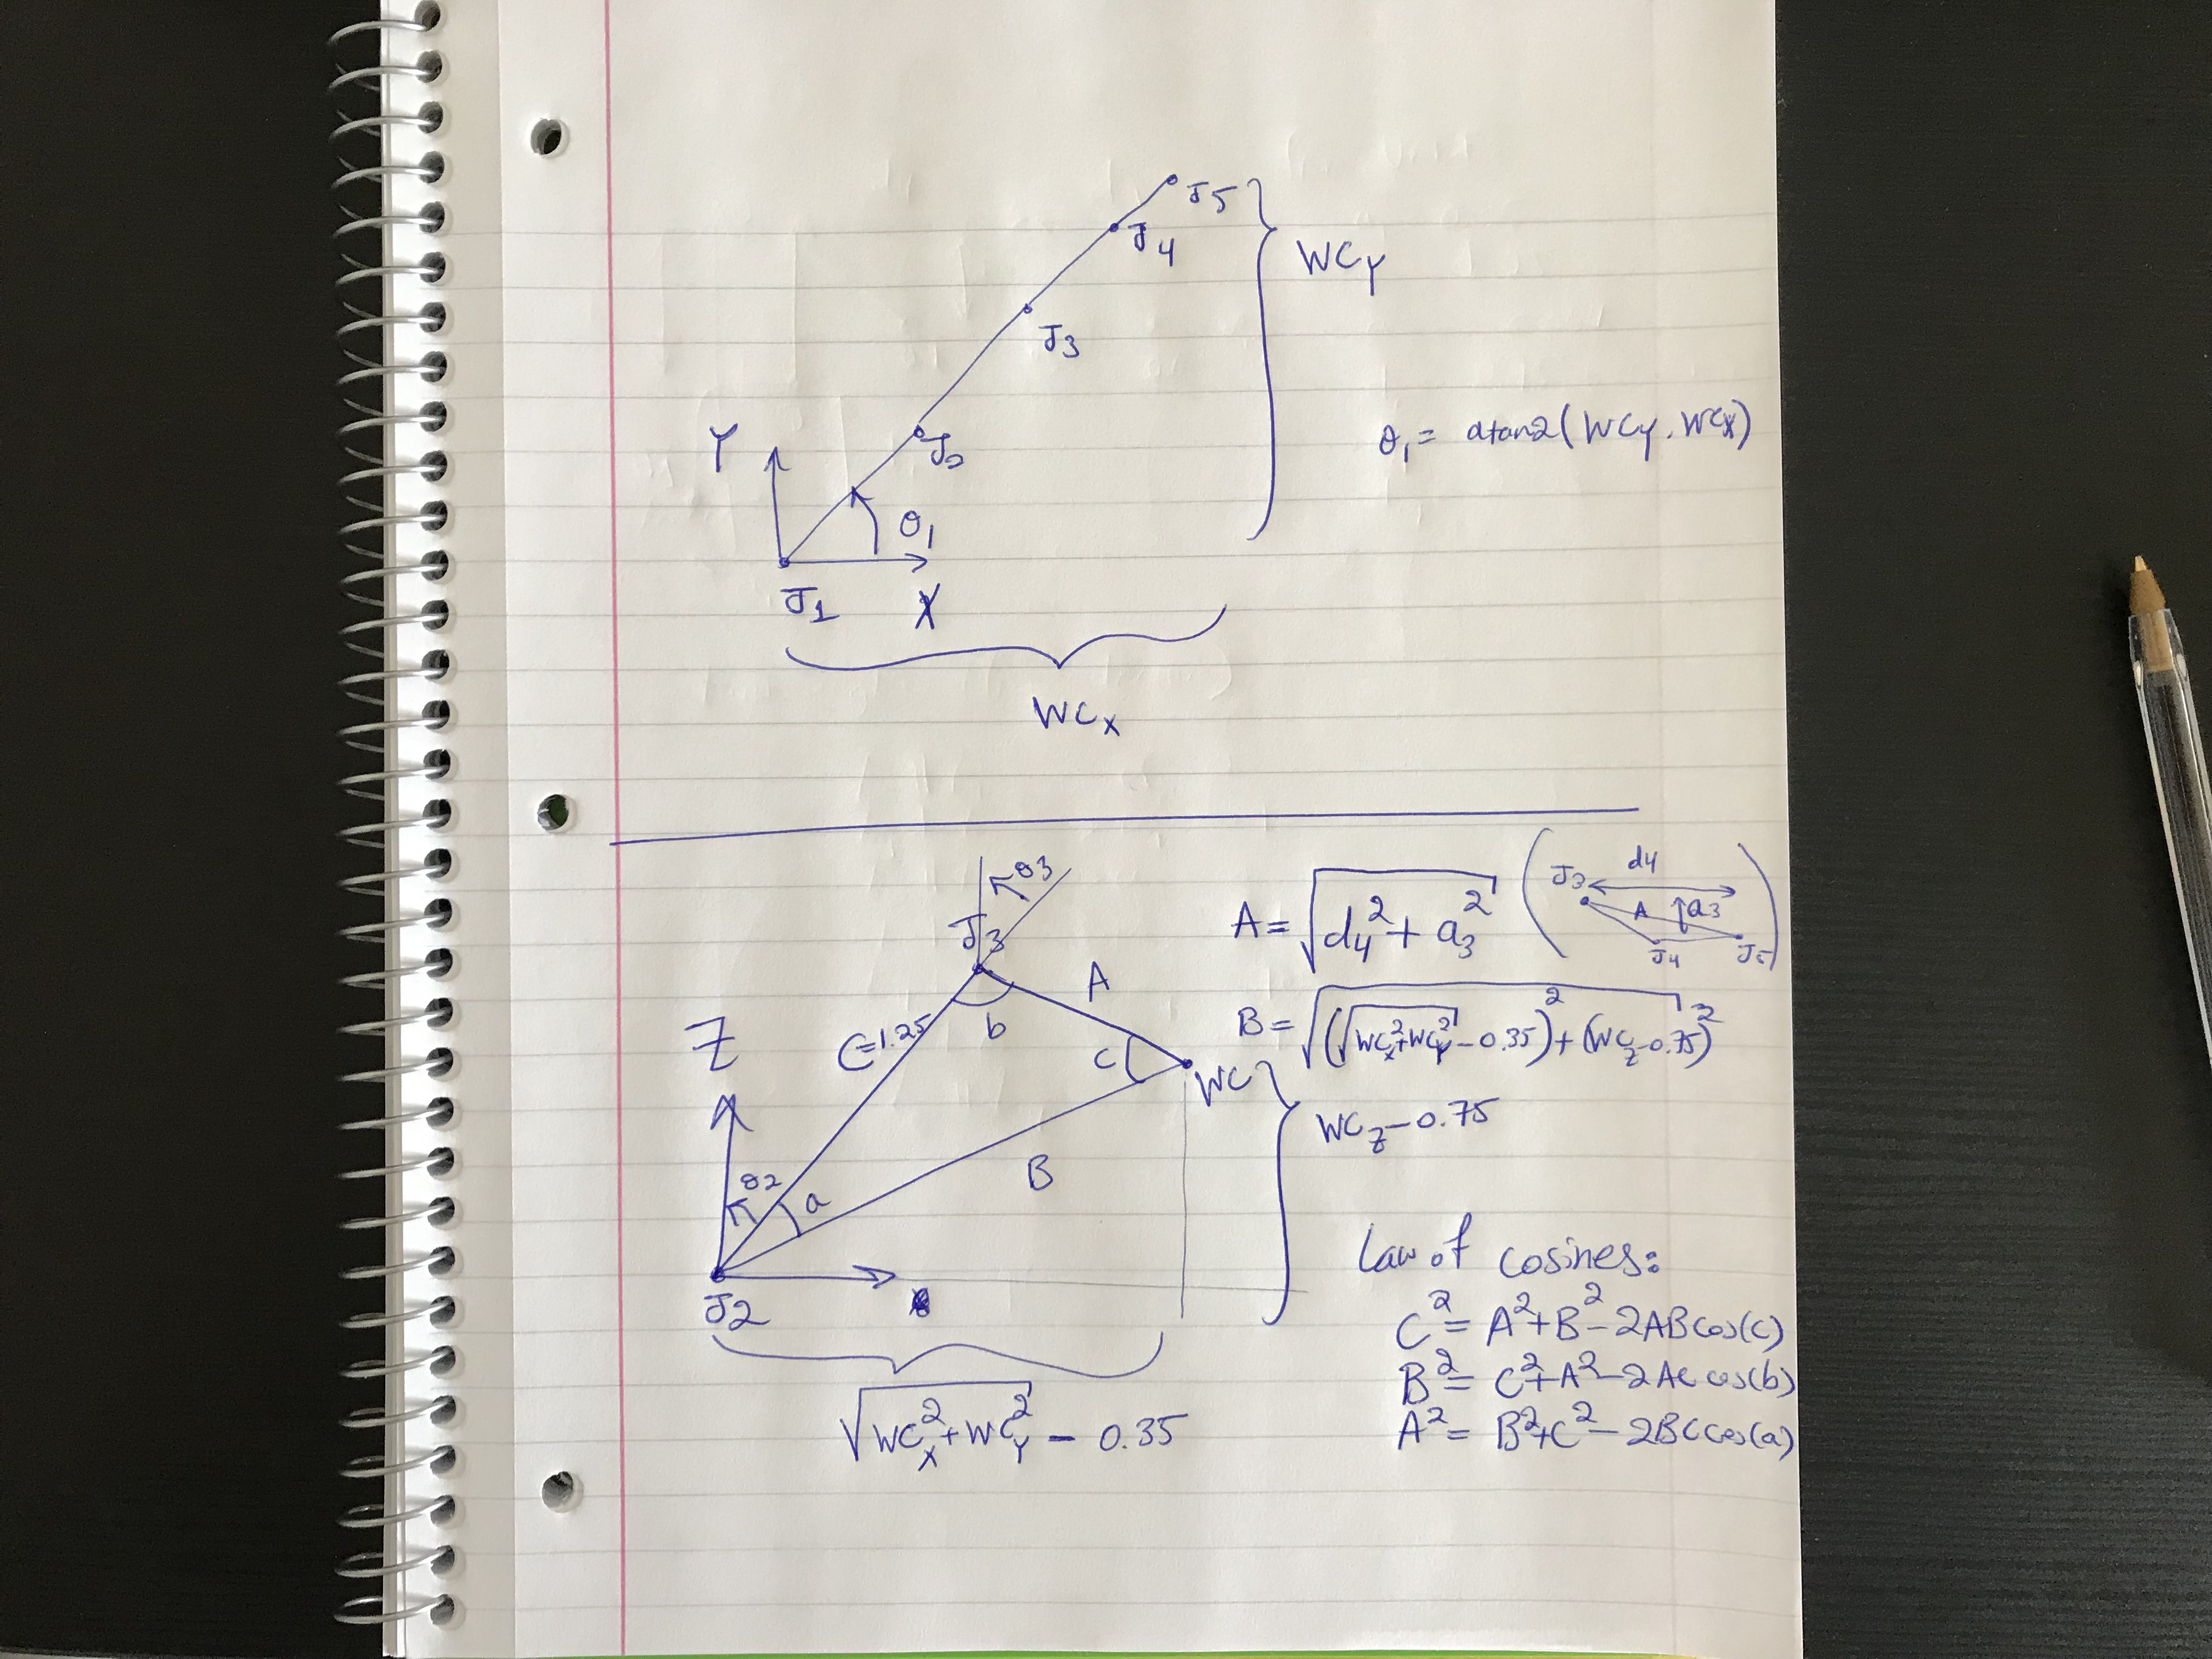 Y
J1
X
θ1
J2
J3
J4
J5
WCx
WCy
θ1 = atan2(WCy, WCx)
Z
J2
θ2
a
C=1.25
J3
θ3
b
A
B
c
WC
√(WCx² + WCy²) - 0.35
WCz - 0.75
A = √(d4² + a3²)
J3
d4
A
a3
J4
J5
B = √((√(WCx²+WCy²) - 0.35)² + (WCz - 0.75)²)
Law of Cosines:
C² = A² + B² - 2ABcos(c)
B² = C² + A² - 2AC cos(b)
A² = B² + C² - 2BCcos(a)